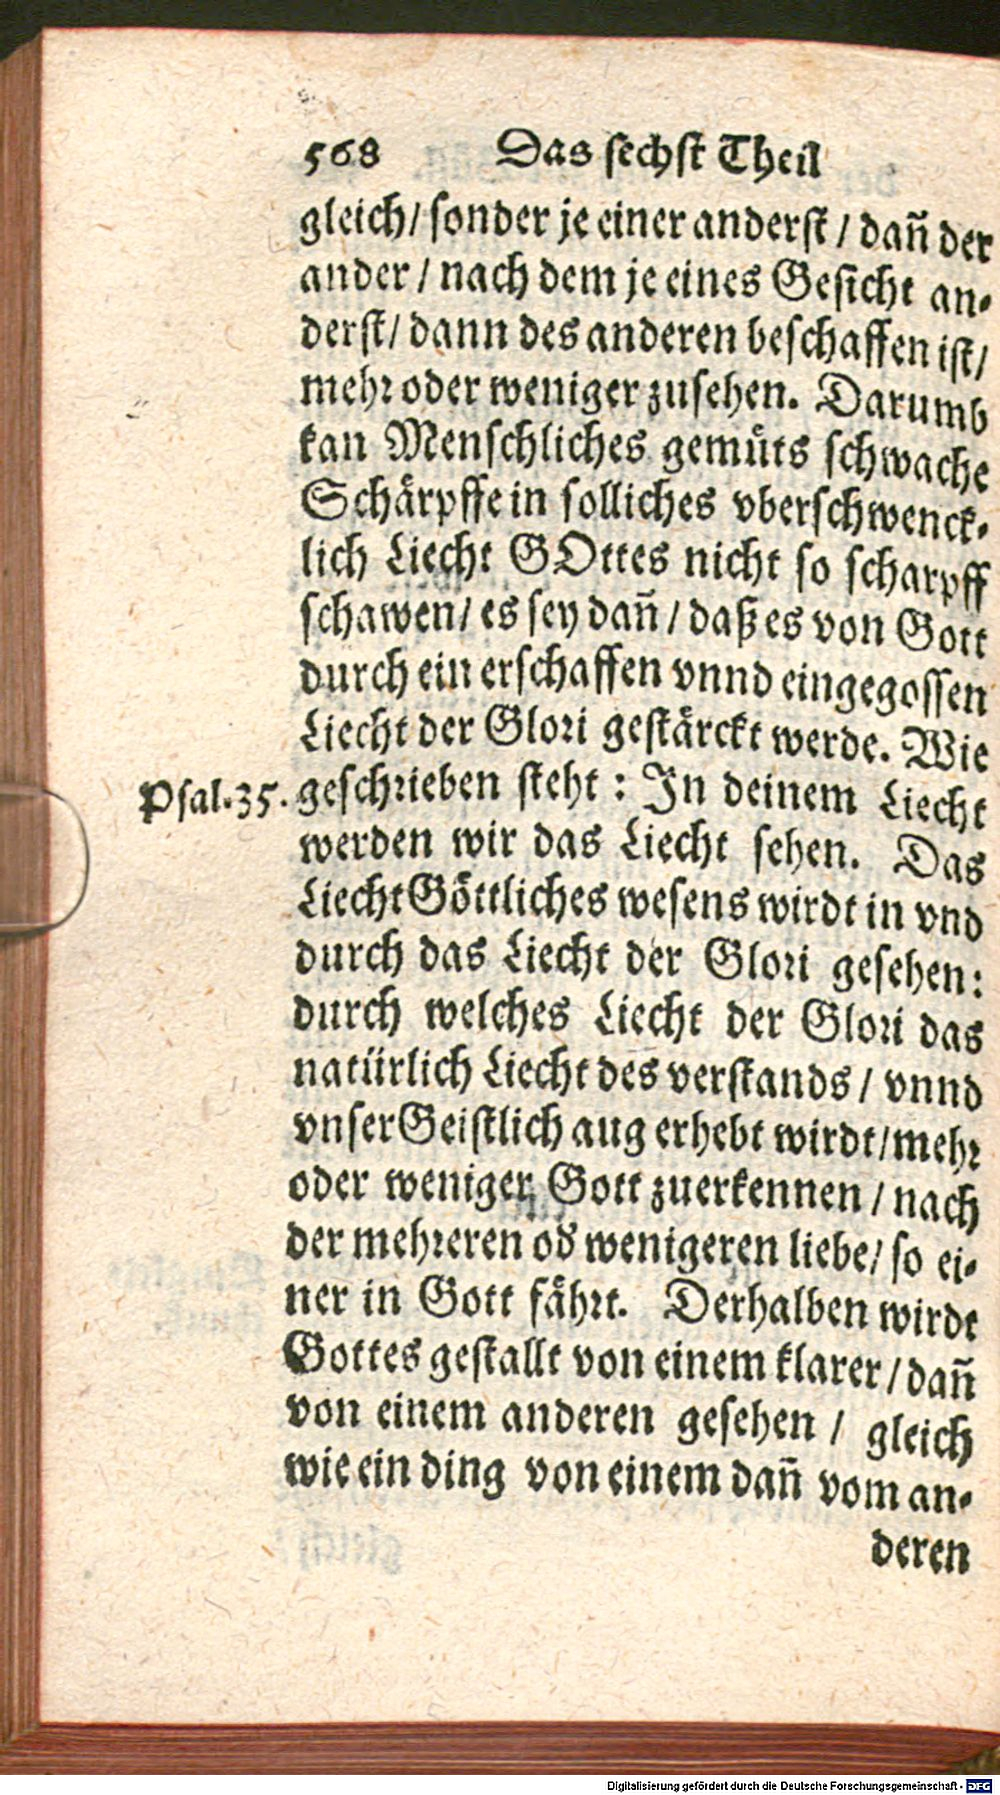 568 Das sechst Theil
gleich/ sonder je einer anderst / dañ der
ander / nach dem je eines Gesicht an-
derst/ dann des anderen beschaffen ist/
mehr oder weniger zusehen. Darumb
kan Menschliches gemüts schwache
Schärpffe in solliches vberschwenck-
lich Liecht GOttes nicht so scharpff
schawen/ es sey dañ / daß es von Gott
durch ein erschaffen vnnd eingegossen
Liecht der Glori gestärckt werde. Wie
Psal.35. geschrieben steht : In deinem Liecht
werden wir das Liecht sehen. Das
Liecht Göttliches wesens wirdt in vnd
durch das Liecht der Glori gesehen:
durch welches Liecht der Glori das
natürlich Liecht des verstands / vnnd
vnser Geistlich aug erhebt wirdt/mehr
oder weniger Gott zuerkennen / nach
der mehreren od wenigeren liebe/ so ei-
ner in Gott fährt. Derhalben wirdt
Gottes gestallt von einem klarer / dañ
von einem anderen gesehen / gleich
wie ein ding von einem dañ vom an-
deren
Digitalisierung gefördert durch die Deutsche Forschungsgemeinschaft - DFG